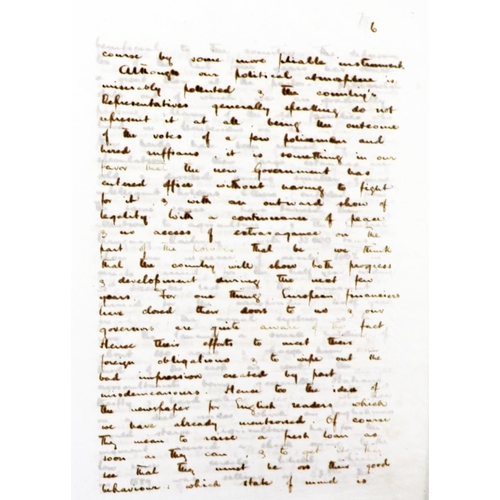 6
course by some more pliable instrument.
Although our political atmosphere is
miserably polluted & the country's
Representatives generally speaking do not
represent it at all: being the outcome
of the votes of a few policemen and
hired ruffians: it is something in our
favor that the new Government has
entered office without having to fight
for it & with an outward show of
legality. With a continuance of peace
& no access of extravagance on the
part of the that be we think
that the country will show both progress
& development during the next few
years. For one thing European financiers
have closed their doors to us & our
governors are quite aware of the fact.
Hence their efforts to meet their
foreign obligations & to wipe out the
bad impression created by past
misdemeanours. Hence too the idea of
the newspaper for English readers which
we have already mentioned. Of course
they mean to raise a fresh loan as
soon as they can & to get it they
see that they must be on their good
behaviour, which state of mind is